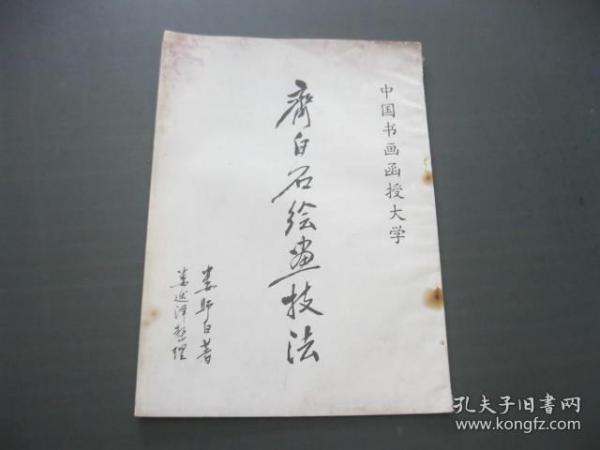 中国书画函授大学
齊白石绘画技法
娄师白著
娄述泽整理
孔夫子旧書网
www.kongfz.com